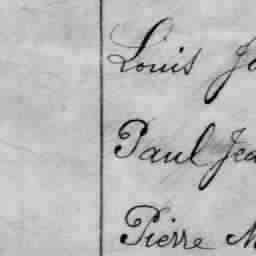 Louis
Paul Jea
Pierre M